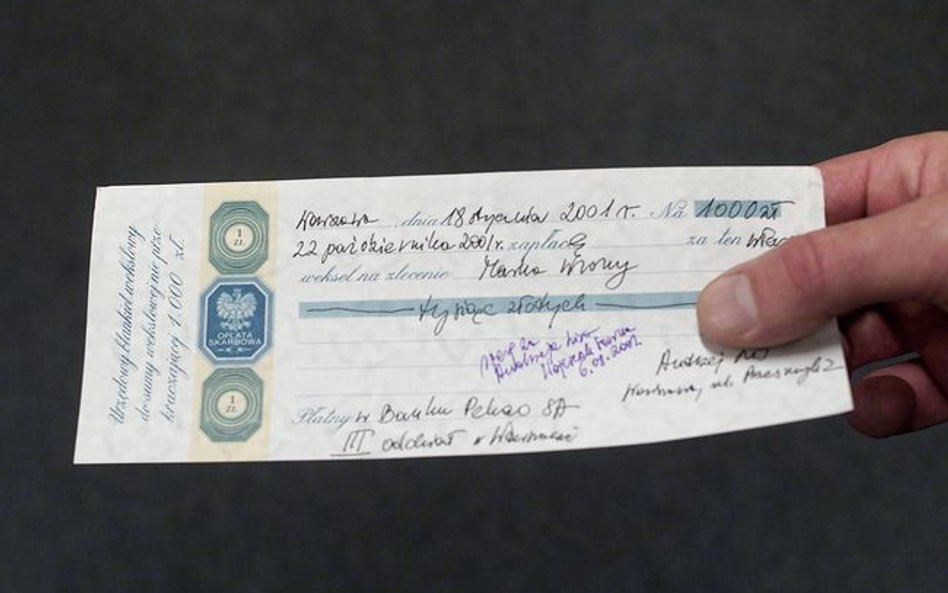 Urzędowy blankiet wekslowy
do sumy wekslowej nie prze-
kraczającej 1.000 zł.
1
ZŁ
OPŁATA
SKARBOWA
1
ZŁ
Warszawa, dnia 18 stycznia 2001 r. Na 1000 zł
22 października 2001 r. zapłacę za ten
weksel na zlecenie Marka Wrony
tysiąc złotych
Andrzej
Warszawa, ul.
Płatny w Banku Pekao SA
III oddział w Warszawie